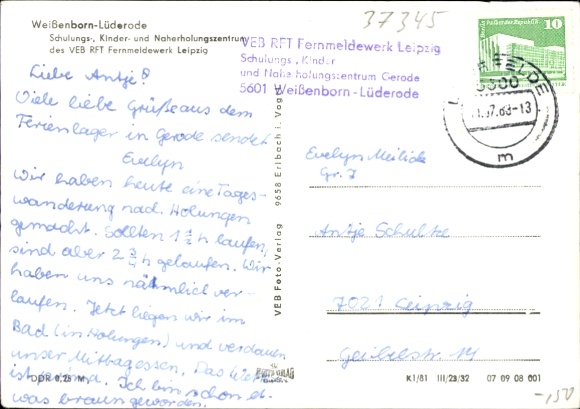 37345
Weißenborn-Lüderode
Schulungs-, Kinder- und Naherholungszentrum
des VEB RFT Fernmeldewerk Leipzig
VEB RFT Fernmeldewerk Leipzig
Schulungs-, Kinder
und Naherholungszentrum Gerode
5601 Weißenborn-Lüderode
10
FELDE
-13
m
Liebe Antje!
Viele liebe Grüße aus dem
Ferienlager in Gerode sendet
Evelyn
Wir haben heute eine Tages-
wanderung nach Holungen
gemacht. Sollten 1 1/2 h laufen,
sind aber 2 3/4 h gelaufen. Wir
haben uns nähmlich ver-
laufen. Jetzt liegen wir im
Bad (in Holungen) und verdauen
unser Mittagessen. Das
ist prima. Ich bin schon et-
was braun geworden.
DDR 0,25 M
VEB Foto-Verlag
9658 Erlbach i. Vogtl.
Evelyn
Gr. 7
Antje Schulze
7021 Leipzig
Geibelstr. 14
K1/81 III/23/32 07 09 08 001
-,50